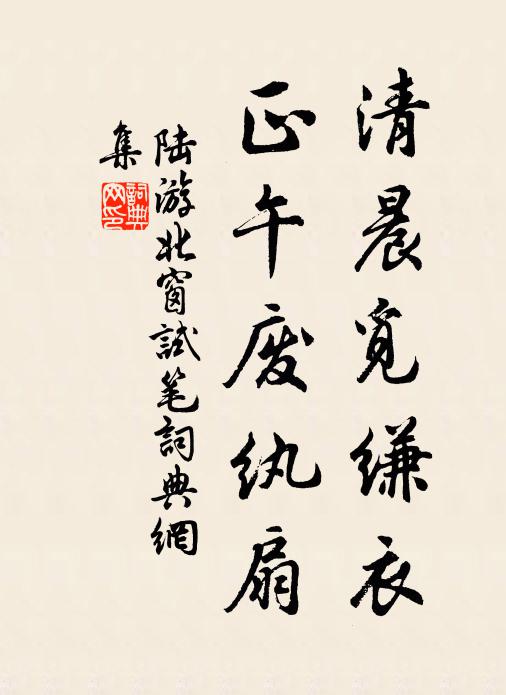 清晨覓縑衣
正午废纨扇
陆游北窗試笔詞典網
集
詞典网印